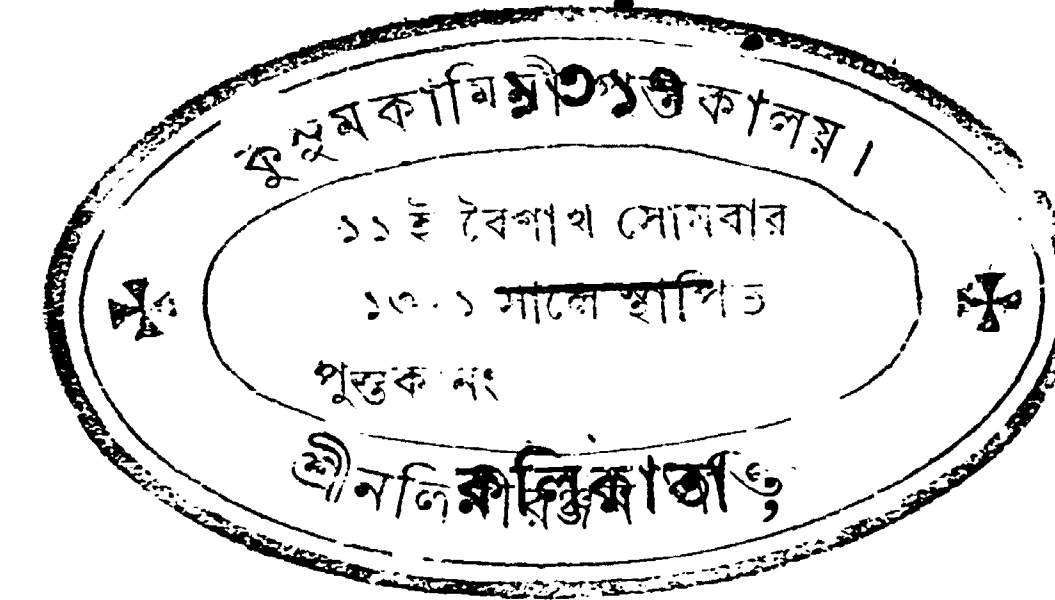 কুসুমকামিনী পুস্তকালয়।
১৩১৩
১১ই বৈশাখ সোমবার
সালে স্থাপিত
পুস্তক নং
শ্রীনলিনীরঞ্জন
কলিকাতা,